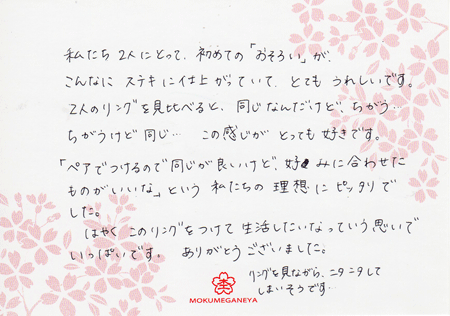 私たち 2人にとって、初めての「おそろい」が、
こんなに ステキに仕上がっていて、とても うれしいです。
2人のリングを見比べると、同じなんだけど、ちがう…
ちがうけど同じ… この感じが とっても 好きです。
「ペアでつけるので同じが良いけど、好みに合わせた
ものがいいな」という 私たちの 理想に ピッタリで
した。
はやく このリングをつけて 生活したいなっていう思いで
いっぱいです。 ありがとうございました。
リングを見ながら、ニタニタして
しまいそうです…
MOKUMEGANEYA